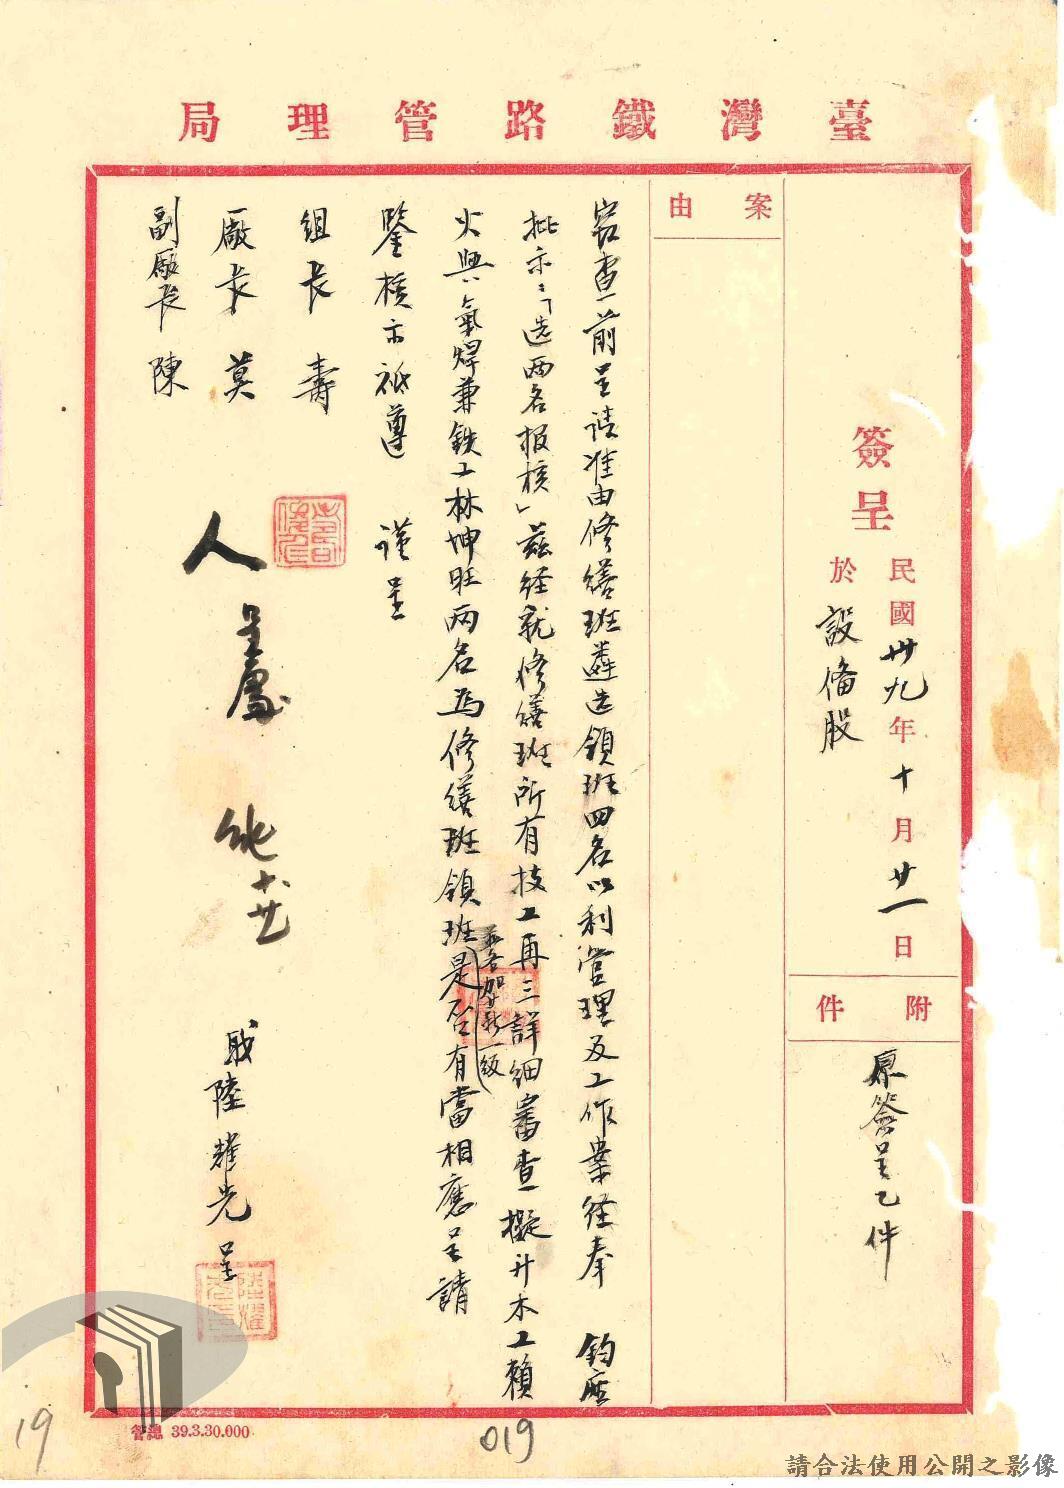 臺灣鐵路管理局
簽呈
民國卅九年十月廿一日
於設備股
附件
原簽呈乙件
案由
窃查前呈請准由修繕班遴选領班四名以利管理及工作案経奉 鈞座
批示:「选兩名报核」兹経就修繕班所有技工再三詳細審查擬升木工賴
火與氣焊兼鉄工林坤旺兩名為修繕班領班是否有當相應呈請
並各加薪一級
鑒核示祗遵 謹呈
組長壽
廠長莫
副廠長陳
職陸耀光呈
管總 39.3.30.000
19
019
請合法使用公開之影像